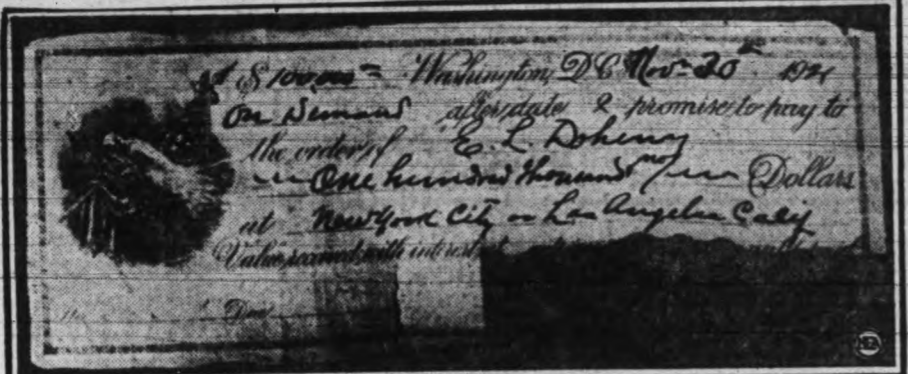 $ 100,000 = Washington, D C Nov- 30th 1921
On Demand after date I promise to pay to
the order of E. L. Doheny
One hundred thousand no/ Dollars
at New York City or Los Angeles Calif
Value received with interest
No. Due